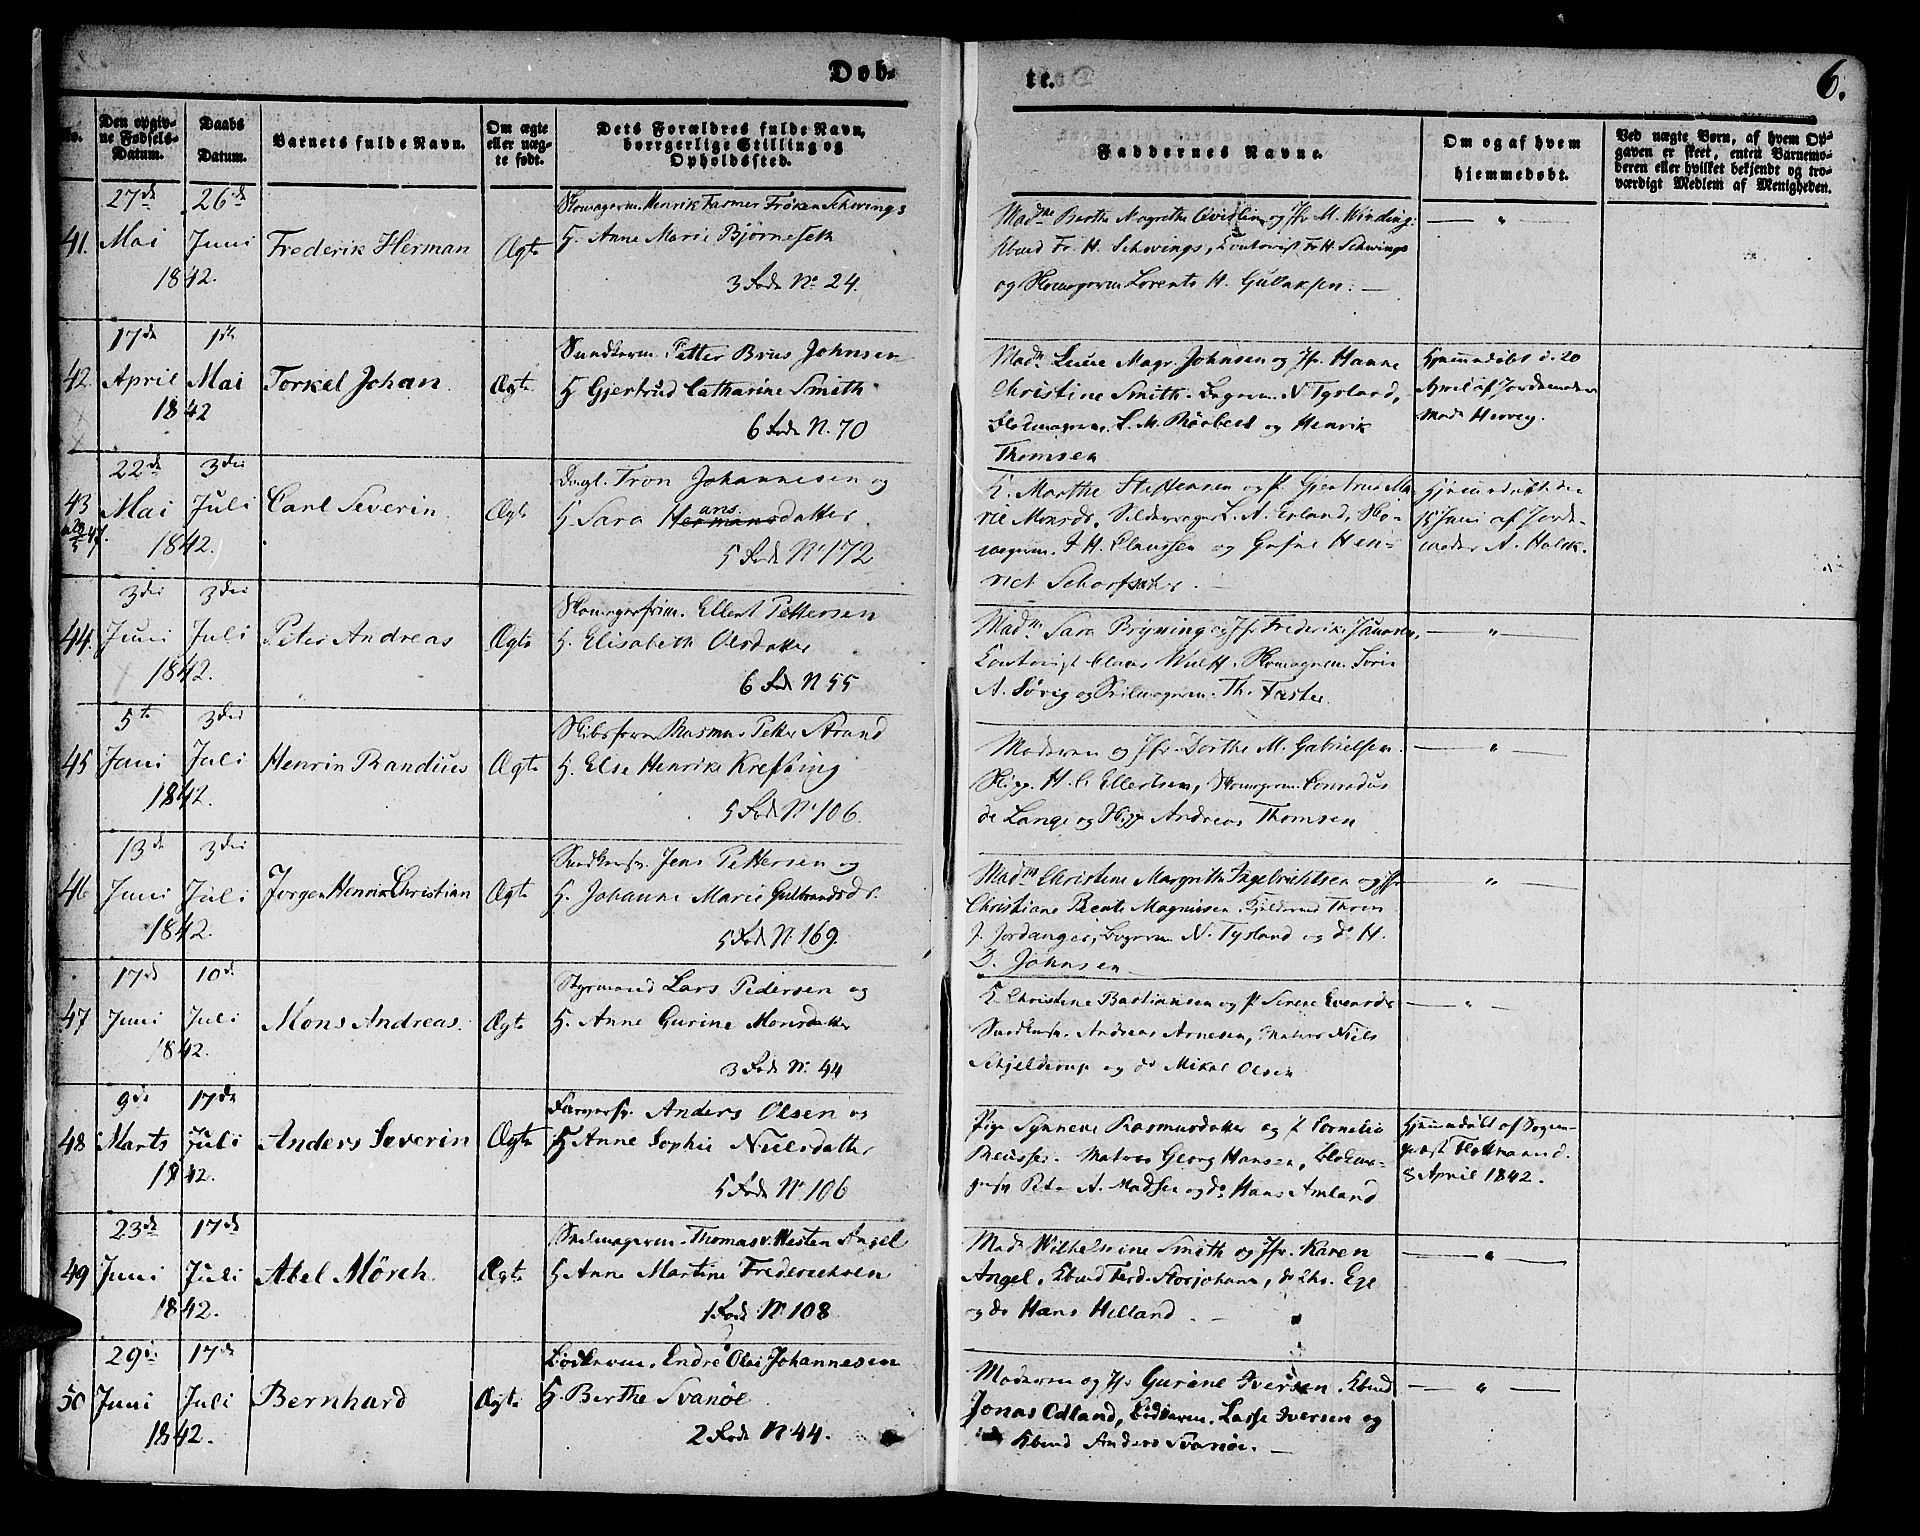 Døb-
te.
6.
No.
Den opgiv-
ne Fødsels-
Datum.
Daabs
Datum.
Barnets fulde Navn.
Om ægte
eller uæg-
te født.
Dets Forældres fulde Navn,
borgerlige Stilling og
Opholdsted.
Faddernes Navne.
Om og af hvem
hjemmedøbt.
Ved uægte Børn, af hvem Op-
gaven er skeet, enten Barnemo-
deren eller hvilket bekjendt og tro-
værdigt Medlem af Menigheden.
41.
27de
Mai
1842.
26de
Juni
Frederik Herman
Ægte
Skomagerm. Henrik Farmer Frøken Schwings
H. Anne Marie Bjørneseth
3 Rode No. 24.
Madme Berthe Magrethe Qvistlin og Jfr M. Winding.
Kbmd Fr. H. Schwings, Contorist Fr. H. Schwings
og Skomagerm Lorents H. Gullaksen.
42.
17de
April
1842
1ste
Mai
Torkel Johan.
Ægte
Sundkarm. Petter Brus Johnsen
H Gjertrud Catharine Smith
6 Rode N. 70
Madm. Magr. Johnsen og Jfr. Hanne
Christine Smith. Bagerm. N Tysland,
L. M. og Henrik
Thomsen
Hjemmedøbt d. 20
April af Jordemoder
Mad. Hervey.
43
22de
Mai
1842.
3die
Juli
Carl Severin.
Ægte
Dagl. Tron Johannesen og
H Sara Hermansdatter.
ans.
5 Rode No 172
K. Marthe Steffensen og P. Gjertrud Ma-
rie Monsdr. L. A. Erland, Sko-
magerm. J H. Claussen og Hen-
rich
Hjemmedøbt den
15 Juni af Jorde-
moder A. Holck.
44.
3die
Juni
1842.
3die
Juli
Peter Andreas
Ægte
Ellert Pettersen
H. Elisabeth Olsdatter
6 Rode N 55
Madm. Sara Bryning og Jfr. Frederike Jaunsen,
Contorist Claus Wulff. Skomagerm.
A. Sørig og Th. Faster.
45
5te
Juni
1842.
3die
Juli
Henrik Randius
Ægte
Rasmus Petter Strand
H. Else Henrike Krefting
5 Rode No 106
Moderen og Jfr. Dorthe M. Gabrielsen.
Skipp. H. C. Ellertsen, Skomagerm. Conradus
de Lange og Skipp Andreas Thomsen
46
13de
Juni
1842.
3die
Juli
Jørgen Henrik Christian
Ægte
Jens Pettersen og
H. Johanne Marie Gulbrandsdr.
5 Rode No. 169.
Madm Christine Margrethe Ingebrichtsen og Jfr
Christiane Beate Magnusen.
J. Jordanger, Bagerm. N. Tysland og do H.
D. Johnsen
47
17de
Juni
1842.
10de
Juli
Mons Andreas.
Ægte
Styrmand Lars Pedersen og
H. Anne Gurine Monsdatter
3 Rode No. 44
K. Christine Bastiansen og P. Serene
Andreas Arnesen, Matros Niels
Schjelderup og do Mikal Olsen
48
9de
Marts
1842.
17de
Juli
Anders Severin
Ægte
Anders Olsen og
H Anne Sophie Nielsdatter
5 Rode No 106
Pige Synneve Rasmusdatter og P. Cornelia
Matros Georg Hansen,
Peter A. Madsen og do Hans Amland
Hjemmedøbt af Sogne-
præst Flottmand.
8 April 1842.
49
23de
Juni
1842.
17de
Juli
Abel Mörch.
Ægte
Thomas v. Westen Angel
H Anne Martine Frederichsen
1 Rode No 108
Mad. Wilhelmine Smith og Jfr. Karen
Angel, Kbmd Ferd. Storjohann, do Chr. Ege
og do Hans Helland
50
29de
Juni
1842.
17de
Juli
Bernhard
Ægte
Bødkerm. Endre Olai Johannesen
H. Berthe Svanöe
2 Rode No 44.
Moderen og Jfr Gurine Iversen, Kbmd
Jonas Odland, Bødkerm. Lasse Iversen og
Kbmd Anders Svanöe.